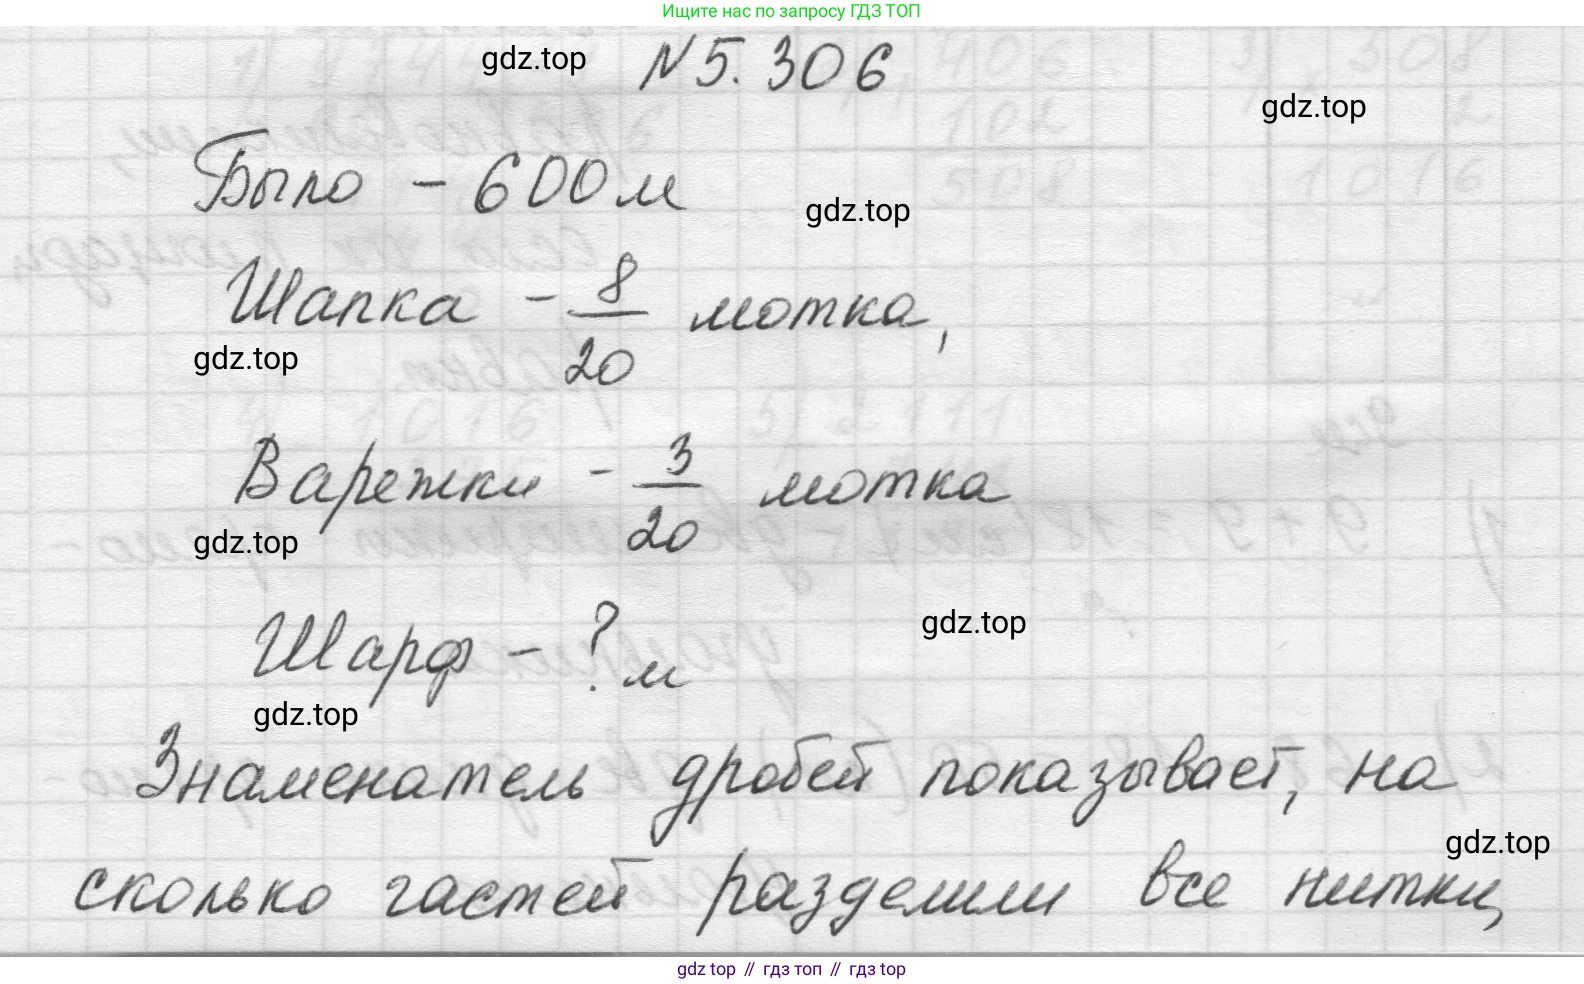 Ищите нас по запросу ГДЗ ТОП
gdz.top
№ 5.306
gdz.top
Было - 600 м
gdz.top
Шапка - 8/20 мотка,
gdz.top
Варежки - 3/20 мотка
gdz.top
Шарф - ? м
gdz.top
gdz.top
Знаменатель дробей показывает, на
gdz.top
сколько частей разделили все нитки,
gdz top // гдз топ // гдз top